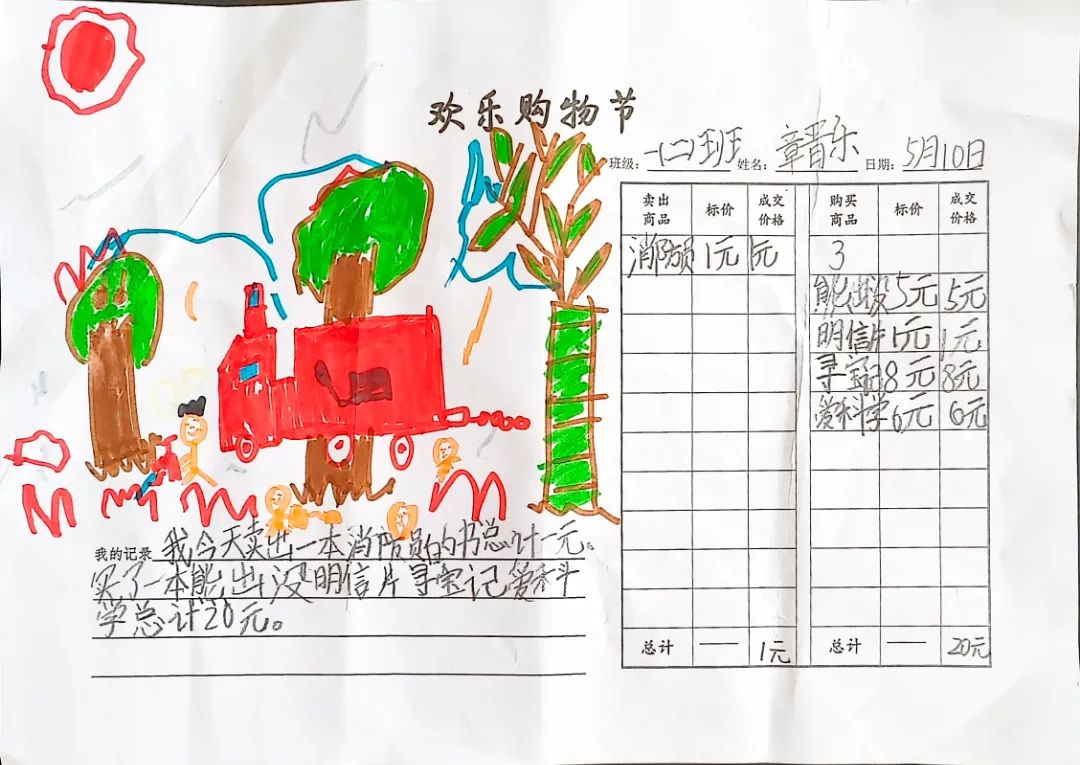 欢乐购物节
班级:一(二)班 姓名:章晋乐 日期:5月10日
卖出商品 标价 成交价格 购买商品 标价 成交价格
消防员 1元 1元 3
能出没 5元 5元
明信片 1元 1元
寻宝记 8元 8元
爱科学 6元 6元
总计 — 1元 总计 — 20元
我的记录 我今天卖出一本消防员的书总计一元。
买了一本能出没明信片寻宝记爱科
学总计20元。